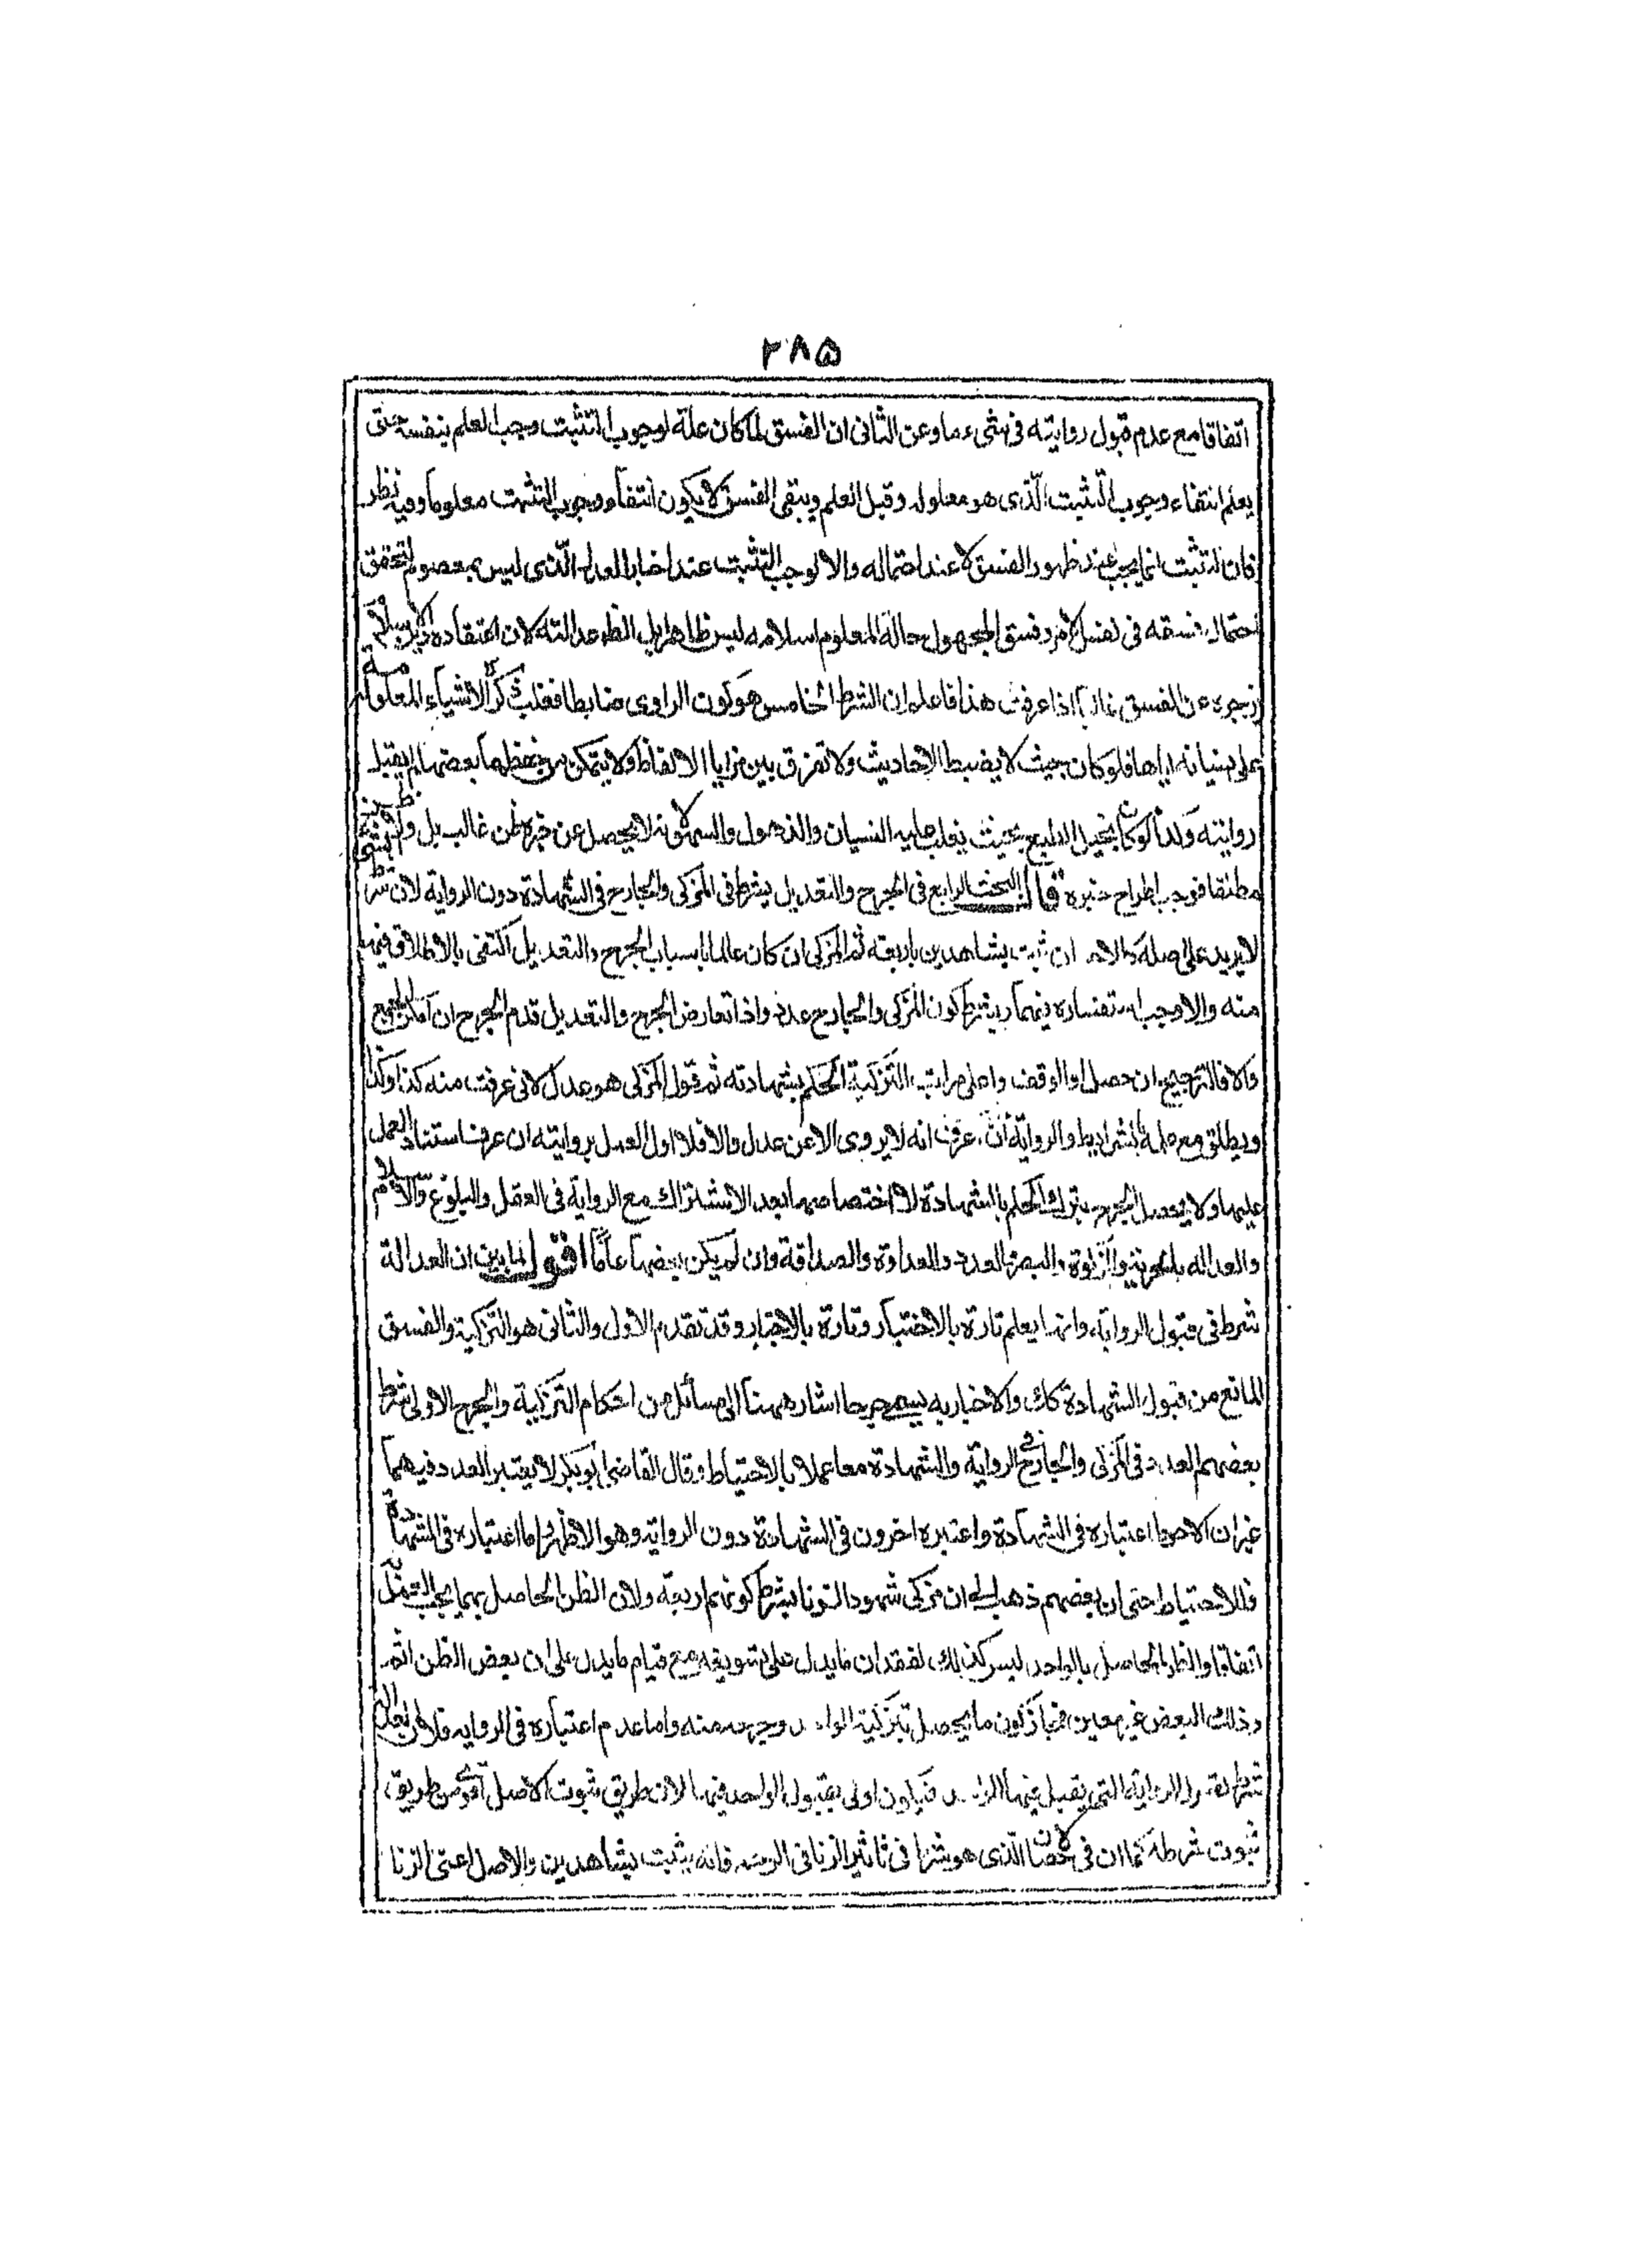 ٢٨٥
اتفاقا مع عدم قبول روايته فى شىء ما وعن الثانى ان الفسق لما كان علة لوجوب التثبت وجب العلم بنفسه حتى
يعلم انتفاء وجوب التثبت الّذى هو معلوله وقبل العلم وينتفى الفسق لا يكون انتفاء وجوب التثبت معلوما وفيه نظر
فان التثبت انما يجب عند ظهور الفسق لا عند احتماله والا لوجب التثبت عند اخبار العدل الّذى ليس بمعصوم لتحقق
احتمال فسقه فى نفس الامر وفسق المجهول حاله المعلوم اسلامه ليس ظاهرا بل الظ عدالته لان اعتقاده دين الاسلام
يزجره عن الفسق غالبا اذا عرفت هذا فاعلم ان الشرط الخامس هو كون الراوى ضابطا فغلب ذكره الاشياء المعلومة
على نسيانه اياها فلو كان بحيث لا يضبط الاحاديث ولا تفرق بين مزايا الالفاظ ولا يتمكن من حفظها بعضها لم يقبل
روايته ولذا لو كان بحيث يغلب عليه النسيان والذهول والسهو لانه لا يحصل عن خبره ظن غالب بل ولا ظن
مطلقا فوجب اطراح خبره قال البحث الرابع فى الجرح والتعديل يشترط فى المزكى والجارح فى الشهادة دون الرواية لان شرط
لا يزيد على اصله كالاحصان ثبت بشاهدين باربعة ثم المزكى ان كان عالما باسباب الجرح والتعديل اكتفى بالاطلاق فيهما
منه والا وجب استفساره فيهما ويشترط كون المزكى والجارح عدلا واذا تعارض الجرح والتعديل قدم الجرح ان امكن الجمع
والا فالترجيح ان حصل او الوقف واعلى مراتب التزكية الحكم بشهادته ثم قول المزكى هو عدل لانى عرفت منه كذا وكذا
ويطلق مع علمه بالشرايط والرواية ان عرف انه لا يروى الا عن عدل والا فلا او العمل بروايته ان عرف استناد العمل
عليها ولا يحصل الجرح بترك الحكم بالشهادة لاختصاصها بعد الاشتراك مع الرواية فى العقل والبلوغ والاسلام
والعدالة بالحرية والذكورة والبصر والعدد والعداوة والصداقة وان لم يكن بعضها عاما اقول لما بين ان العدالة
شرط فى قبول الرواية وانها يعلم تارة بالاختبار وتارة بالاخبار وقد تقدم الاول والثانى هو التزكية والفسق
المانع من قبول الشهادة كك والاخبار به يسمى جرحا اشار ههنا الى مسائل من احكام التزكية والجرح الاولى شرط
بعضهم العدد فى المزكى والجارح فى الرواية والشهادة معا عملا بالاحتياط وقال القاضى ابو بكر لا يعتبر العدد فيهما
غير ان الاحوط اعتباره فى الشهادة واعتبره اخرون فى الشهادة دون الرواية وهو الاظهر اما اعتباره فى الشهادة
فللاحتياط حتى ان بعضهم ذهب الى ان مزكى شهود الزنا يشترط كونهم اربعة ولان الظن الحاصل بهما يجب العمل به
اتفاقا والظن الحاصل بالواحد ليس كذلك لفقدان ما يدل على تسويغه مع قيام ما يدل على ان بعض الظن اثم
وذلك البعض غير معين فجاز كون ما يحصل بتزكية الواحد وجهه منه واما عدم اعتباره فى الرواية فلان العدالة
شرط لقبول الرواية التى يقبل فيها الواحد فيكون اولى بقبول الواحد فيها لان طريق ثبوت الاصل اقوى من طريق
ثبوت شرطه كما ان فى الاحصان الّذى هو شرط فى تاثير الزنا فى الرجم فانه يثبت بشاهدين والاصل اعنى الزنا